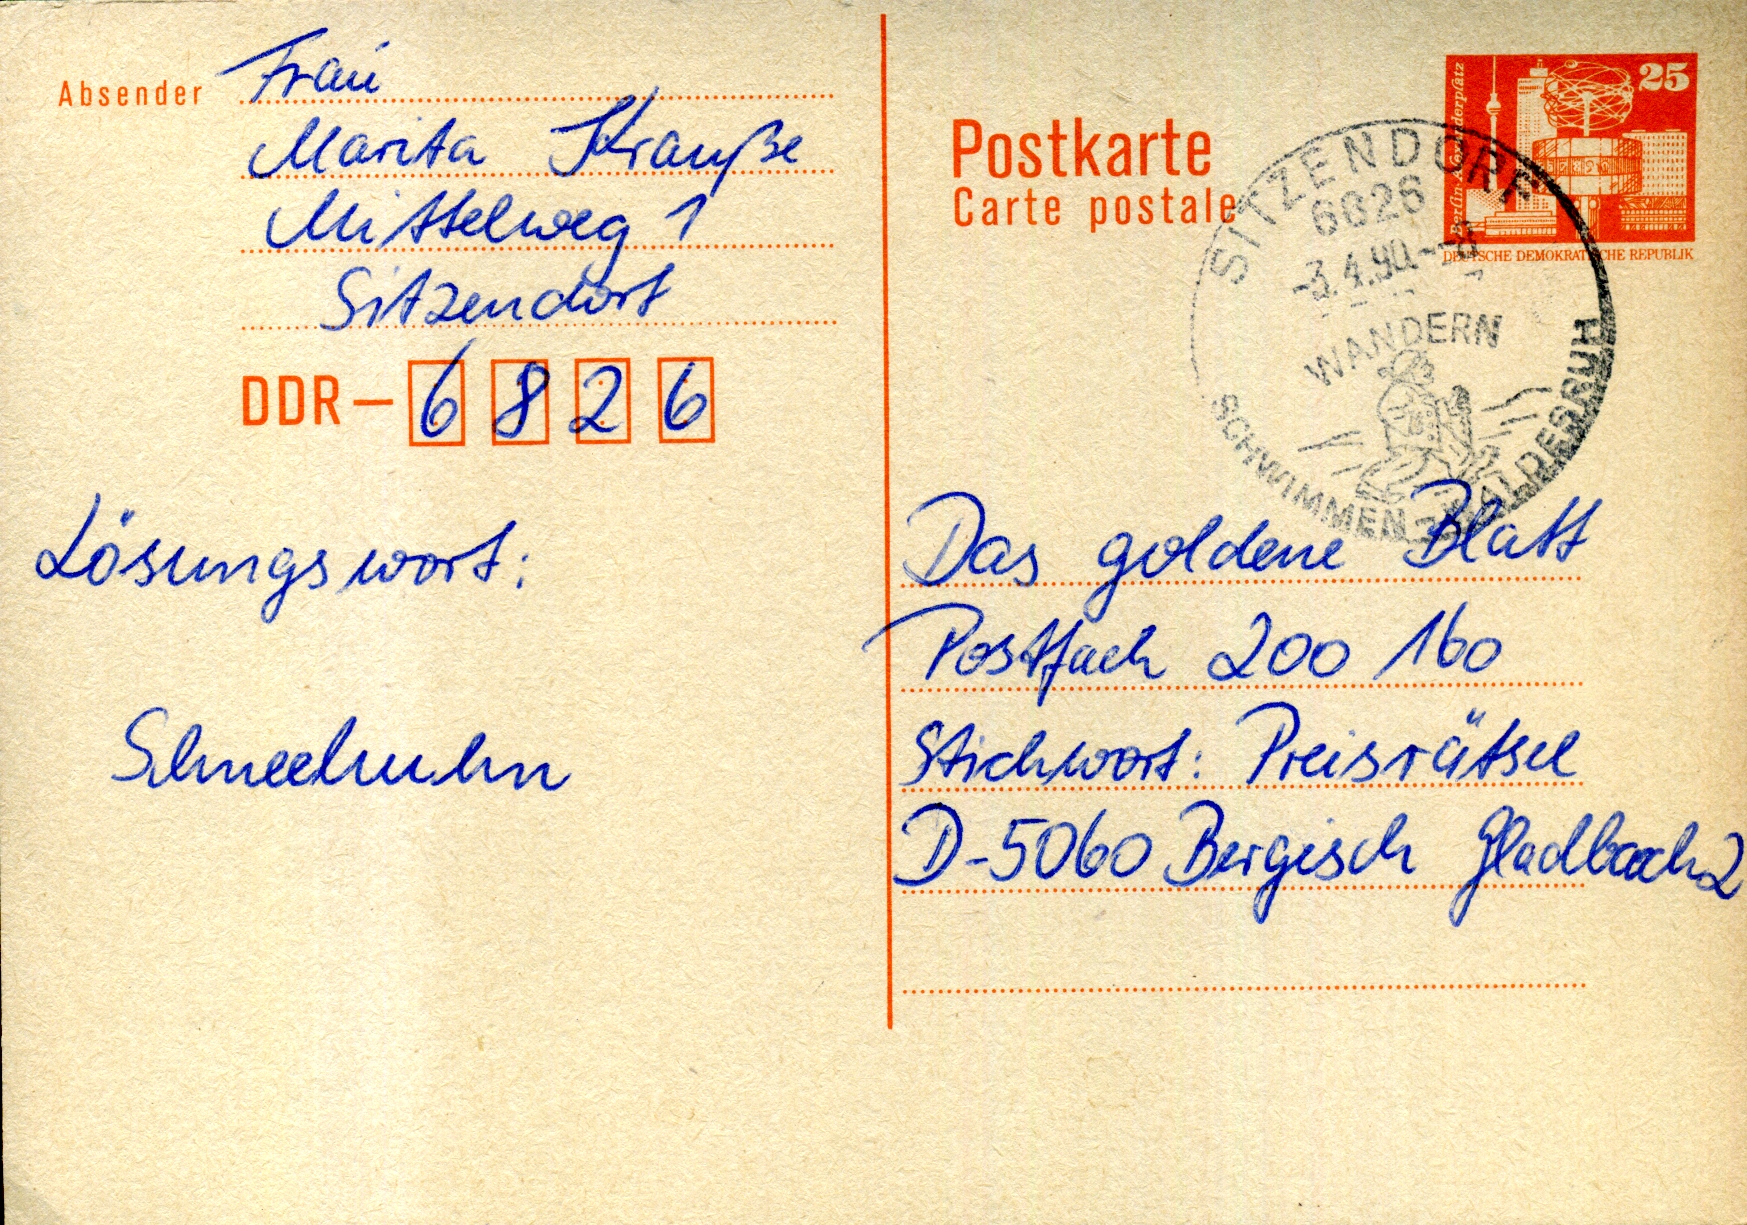 Absender Frau
Marita Krauße
Mittelweg 1
Sitzendorf
DDR – 6 8 2 6
Lösungswort:
Schneehuhn
Postkarte
Carte postale
25
Berlin-Alexanderplatz
DEUTSCHE DEMOKRATISCHE REPUBLIK
SITZENDORF
6826
-3.4.90.-
WANDERN
SCHWIMMEN - WALDESRUH
Das goldene Blatt
Postfach 200 160
Stichwort: Preisrätsel
D-5060 Bergisch Gladbach 2